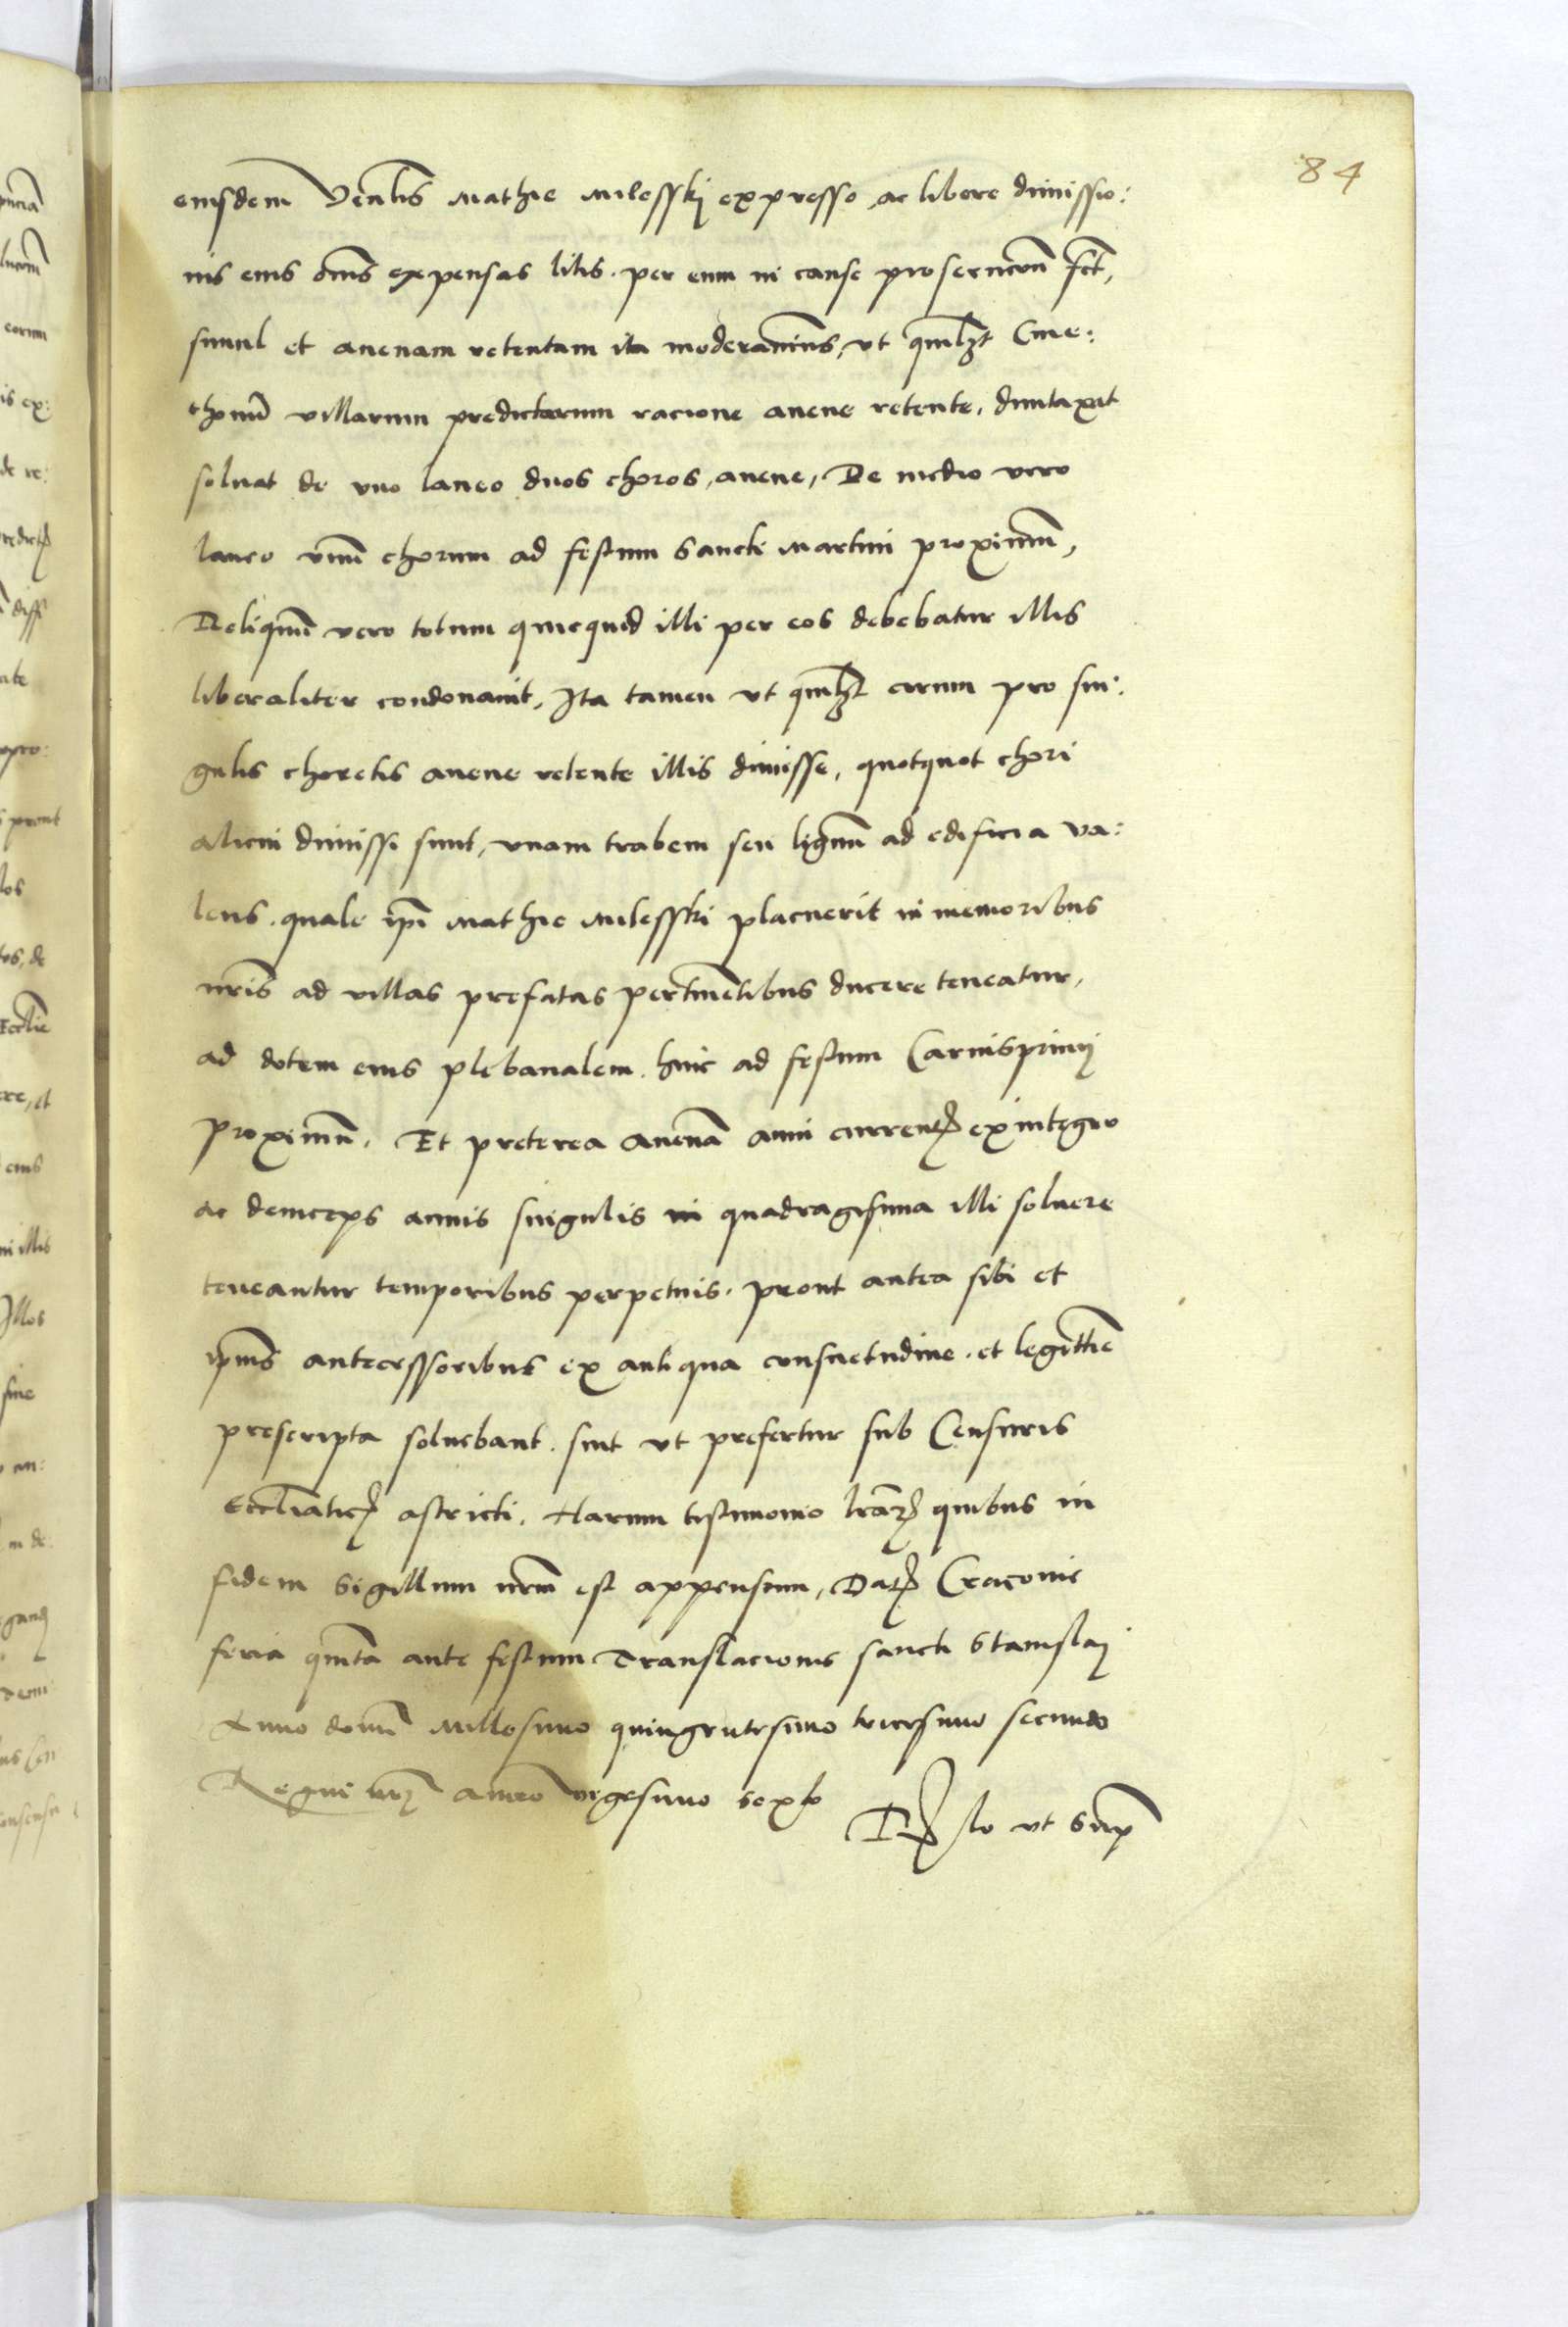 84
eiusdem Venlis Mathie Milesskij expresso, ac libere dimissio:
nis eius oms expensas litis. per eum in cause prosecucion fct,
simul et auenam retentam ita moderauimus, vt quilzt Cme:
thonu villarum predictarum racione auene retente, duntaxat
soluat de vno laneo duos choros, auene, De medio vero
laneo vnu chorum ad festum Sancti Martini proximum,
Reliquu vero totum quicquid illi per eos debebatur illis
liberaliter condonauit, Ita tamen vt quilzt eorum pro sin:
gulis choretis auene retente illis dimisse, quotquot chori
alicui dimissi sunt, vnam trabem seu lignu ad edificia va:
lens. quale ipi Mathie Milesski placuerit in nemoribus
nris ad villas prefatas pertinetibus ducere teneatur,
ad dotem eius plebanalem. hinc ad festum Carnispriuij
proximu. Et preterea auena anni current ex integro
ac deinceps annis singulis in quadragesima illi soluere
teneantur temporibus perpetuis. prout antea sibi et
ipius antecessoribus ex antiqua consuetudine. et legittie
prescripta soluebant. sint vt prefertur sub Censuris
Eccliatic astricti. Harum testimonio lrar quibus in
fidem Sigillum nrm est appensum, Dat Cracouie
feria quinta ante festum Translacionis sancti Stanislaj
Anno domi Millesimo quingentesimo tricesimo secundo
Regni nri anno vigesimo sexto
Rlo vt Supra